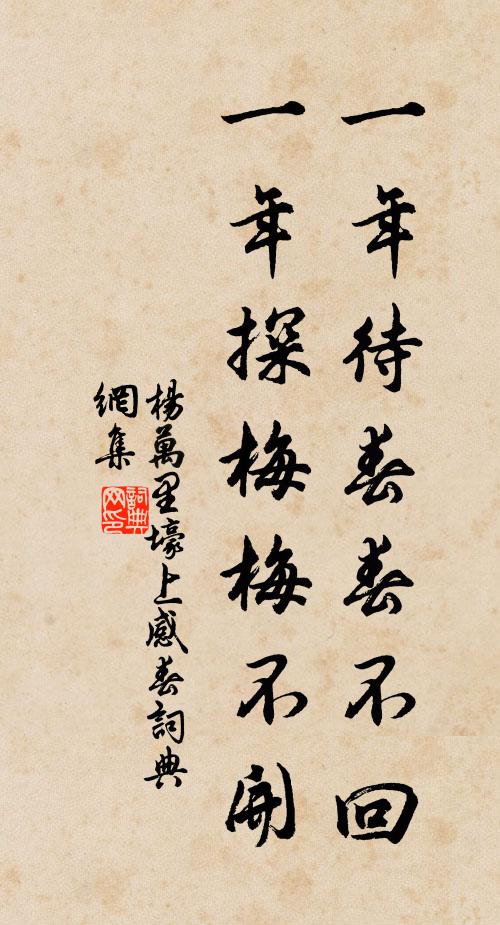 一年待春春不回
一年探梅梅不開
楊萬里壕上感春詞典
網集
詞典
网印